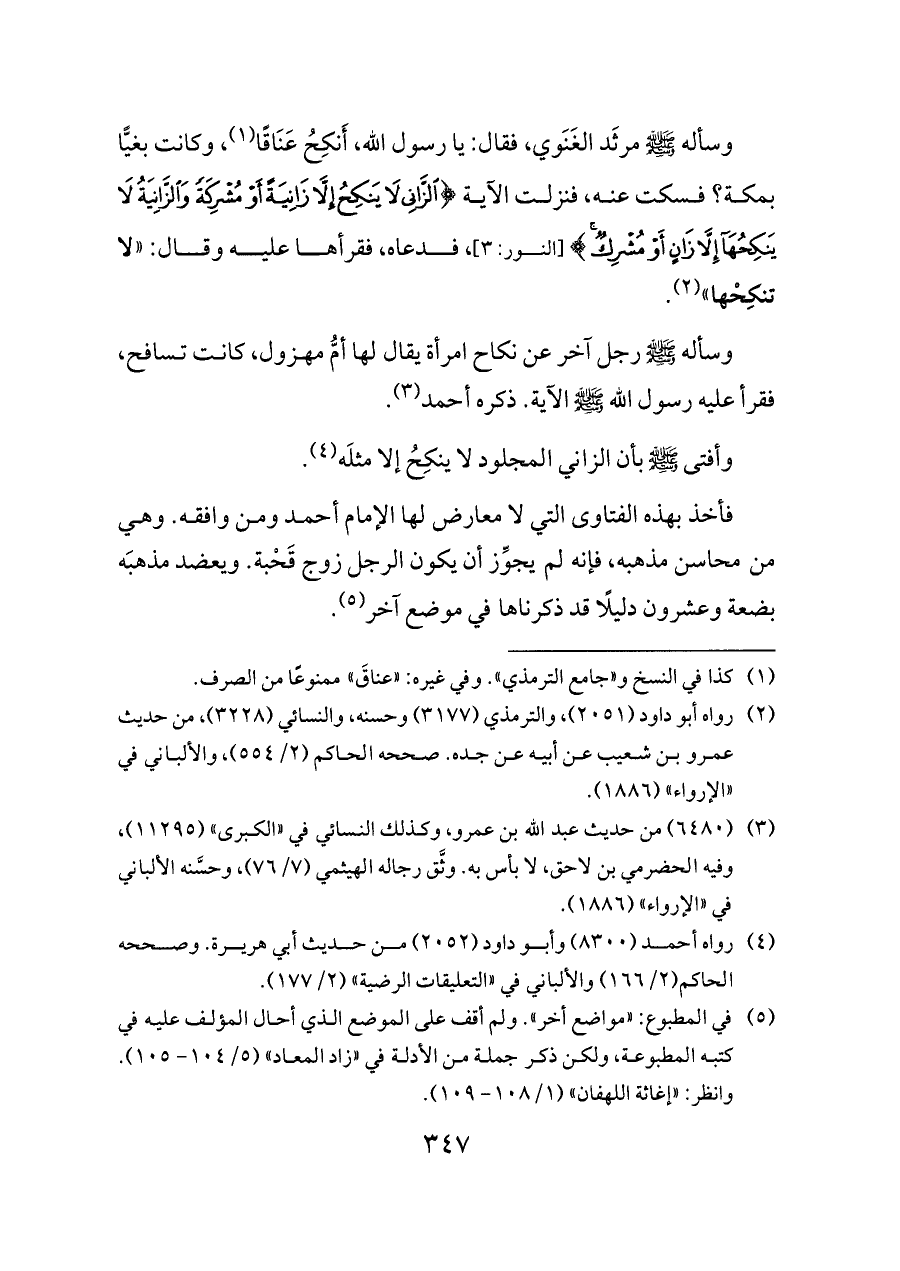 وسأله ﷺ مرثَد الغَنَوي، فقال: يا رسول الله، أَنكِحُ عَنَاقًا(١)، وكانت بغيًّا
بمكة؟ فسكت عنه، فنزلت الآية ﴿ٱلزَّانِى لَا يَنكِحُ إِلَّا زَانِيَةً أَوْ مُشْرِكَةً وَٱلزَّانِيَةُ لَا
يَنكِحُهَآ إِلَّا زَانٍ أَوْ مُشْرِكٌ ۚ﴾ [النور: ٣]، فدعاه، فقرأها عليه وقال: «لا
تنكِحْها»(٢).
وسأله ﷺ رجل آخر عن نكاح امرأة يقال لها أمُّ مهزول، كانت تسافح،
فقرأ عليه رسول الله ﷺ الآية. ذكره أحمد(٣).
وأفتى ﷺ بأن الزاني المجلود لا ينكِحُ إلا مثلَه(٤).
فأخذ بهذه الفتاوى التي لا معارض لها الإمام أحمد ومن وافقه. وهي
من محاسن مذهبه، فإنه لم يجوِّز أن يكون الرجل زوج قَحْبة. ويعضد مذهبَه
بضعة وعشرون دليلًا قد ذكرناها في موضع آخر(٥).
(١) كذا في النسخ و«جامع الترمذي». وفي غيره: «عناقَ» ممنوعًا من الصرف.
(٢) رواه أبو داود (٢٠٥١)، والترمذي (٣١٧٧) وحسنه، والنسائي (٣٢٢٨)، من حديث
عمرو بن شعيب عن أبيه عن جده. صححه الحاكم (٢/ ٥٥٤)، والألباني في
«الإرواء» (١٨٨٦).
(٣) (٦٤٨٠) من حديث عبد الله بن عمرو، وكذلك النسائي في «الكبرى» (١١٢٩٥)،
وفيه الحضرمي بن لاحق، لا بأس به. وثَّق رجاله الهيثمي (٧/ ٧٦)، وحسَّنه الألباني
في «الإرواء» (١٨٨٦).
(٤) رواه أحمد (٨٣٠٠) وأبو داود (٢٠٥٢) من حديث أبي هريرة. وصححه
الحاكم(٢/ ١٦٦) والألباني في «التعليقات الرضية» (٢/ ١٧٧).
(٥) في المطبوع: «مواضع أخر». ولم أقف على الموضع الذي أحال المؤلف عليه في
كتبه المطبوعة، ولكن ذكر جملة من الأدلة في «زاد المعاد» (٥/ ١٠٤ - ١٠٥).
وانظر: «إغاثة اللهفان» (١/ ١٠٨ - ١٠٩).
٣٤٧